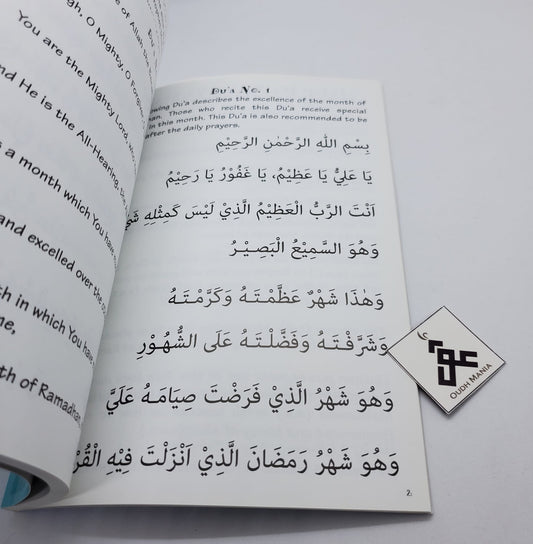 gh, O Mighty, O Forgiv
You are the Mighty Lord, who
nd He is the All-Hearing, the
s a month which You have
and excelled over the
th in which You have
me,
th of Ramadhan
Du'a No. 1
owing Du'a describes the excellence of the month of
an. Those who recite this Du'a receive special
in this month. This Du'a is also recommended to be
after the daily prayers.
بِسْمِ اللهِ الرَّحْمٰنِ الرَّحِيْمِ
يَا عَلِيُّ يَا عَظِيْمُ، يَا غَفُوْرُ يَا رَحِيْمُ
اَنْتَ الرَّبُّ الْعَظِيْمُ الَّذِيْ لَيْسَ كَمِثْلِهِ شَيْ
وَهُوَ السَّمِيْعُ الْبَصِيْرُ
وَهٰذَا شَهْرٌ عَظَّمْتَهُ وَكَرَّمْتَهُ
وَشَرَّفْتَهُ وَفَضَّلْتَهُ عَلَى الشُّهُوْرِ
وَهُوَ شَهْرُ الَّذِيْ فَرَضْتَ صِيَامَهُ عَلَيَّ
وَهُوَ شَهْرُ رَمَضَانَ الَّذِيْ اَنْزَلْتَ فِيْهِ الْقُرْ
2
OUDH MANIA